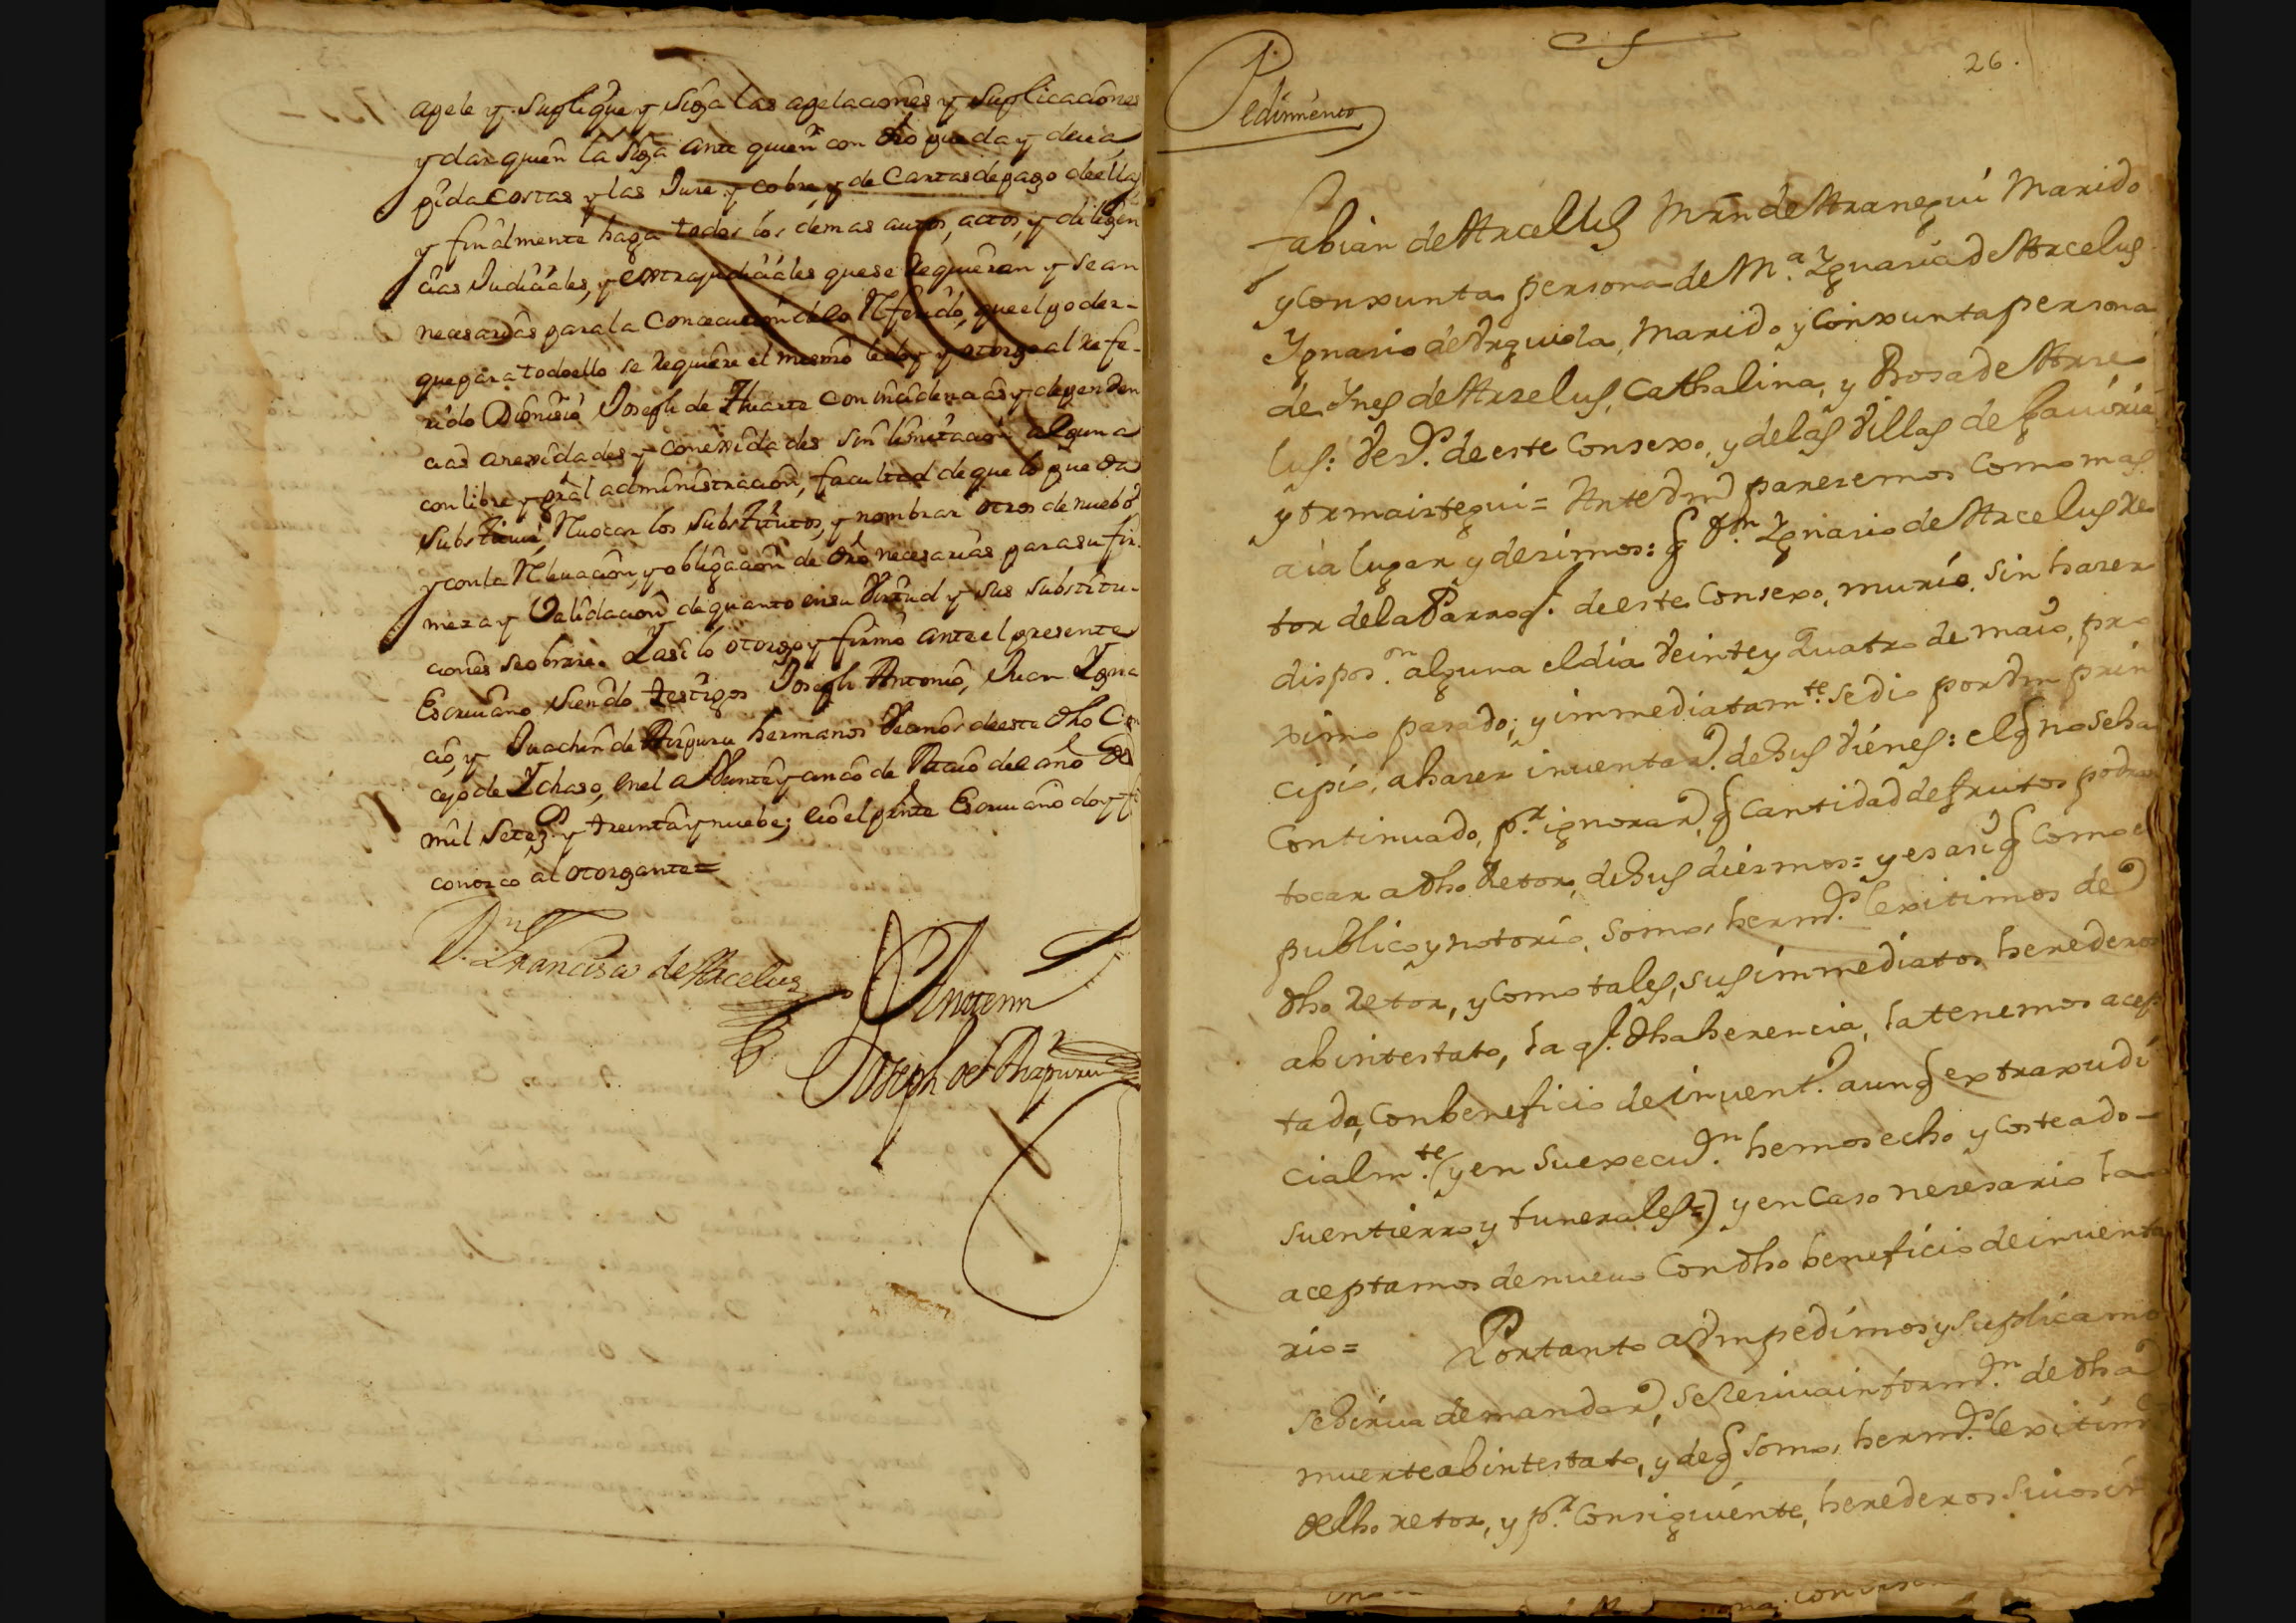 apele y suplique y siga las apelaciones y suplicaciones
y dar quien la siga ante quien con dro pueda y deua
pida costas y las Jure y cobre y de Cartas de pago de ellas
y finalmente haga todos los demas autos, actos, y diligen
cias Judiciales, y extrajudiciales que se requieran y sean
necesarias para la Consecucion de lo Referido, que el poder-
que para todo ello se requiere el mesmo le doy y otorgo al Refe-
rido Dionisio Joseph de Huarte con incidencias y dependen
cias anexidades y conexidades sin limitacion alguna
con libre y gral administracion, facultad de que lo pueda
substituir, Reuocar los substitutos, y nombrar otros de nuebo
y con la Releuacion, y obligacion de dro necesarias para su fir-
meza y Validacion de quanto en su Virtud y sus substitu-
ciones se obrare. Y asi lo otorgo y firmo ante el presente
Escriuano siendo testigos Joseph Antonio, Juan Ygna
cio, y Juachin de Aizpuru hermanos Vecinos de este dho Con
cejo de Ychaso, en el a Veinte y cinco de Maio del año de
mil Setez.s y treinta y nuebe; e io el prnte Escriuano doy fe
conozco al otorgante=
D.n Francisco de Arcelus
Antemi
Joseph de Aizpuru
26.
Pedimento
Fabian de Arcelus, Mrn de Aranegui Marido
y Conxunta persona de M.a Ygnacia de Arcelus
Ygnacio de Vrquiola, Marido y Conxunta persona
de Ynes de Arzelus, Cathalina, y Rosa de Arze
lus: Vez.s de este Consexo, y de las Villas de Gauiria
y Ormaiztegui= Ante Vmd parezemos Como mas
aia lugar y dezimos: q Dn. Ygnazio de Arcelus Re
tor de la Parroq.l de este Consexo, murio, sin hazer
dispos.on alguna el dia Veinte y Quatro de maio, pro
ximo pasado; y immediatam.te se dio por Vm prin
cipio, a hazer inuentar.o de sus Vienes: el q no se ha
Continuado, p.r ignorar, q Cantidad de frutos podran
tocar a dho Retor, de sus diezmos= y es asi q Como es
publico y notorio, somos herm.s lexitimos de
dho Retor, y como tales, sus immediatos herederos
abintestato, la q.l dha herencia, la tenemos acep
tada, Con beneficio de inuent.o aunq extraxudi
cialm.te (y en su execu.on hemos echo y Costeado-
su entierro y funerales=) y en Caso nezesario la
aceptamos de nueuo Con dho beneficio de inuenta
rio= Por tanto a Vm pedimos y suplicamos
se sirua de mandar, se Reciua inform.on de dha
muerte abintestato, y de q somos herm.s lexitimos
de dho retor, y p.r Consiguiente, herederos suios